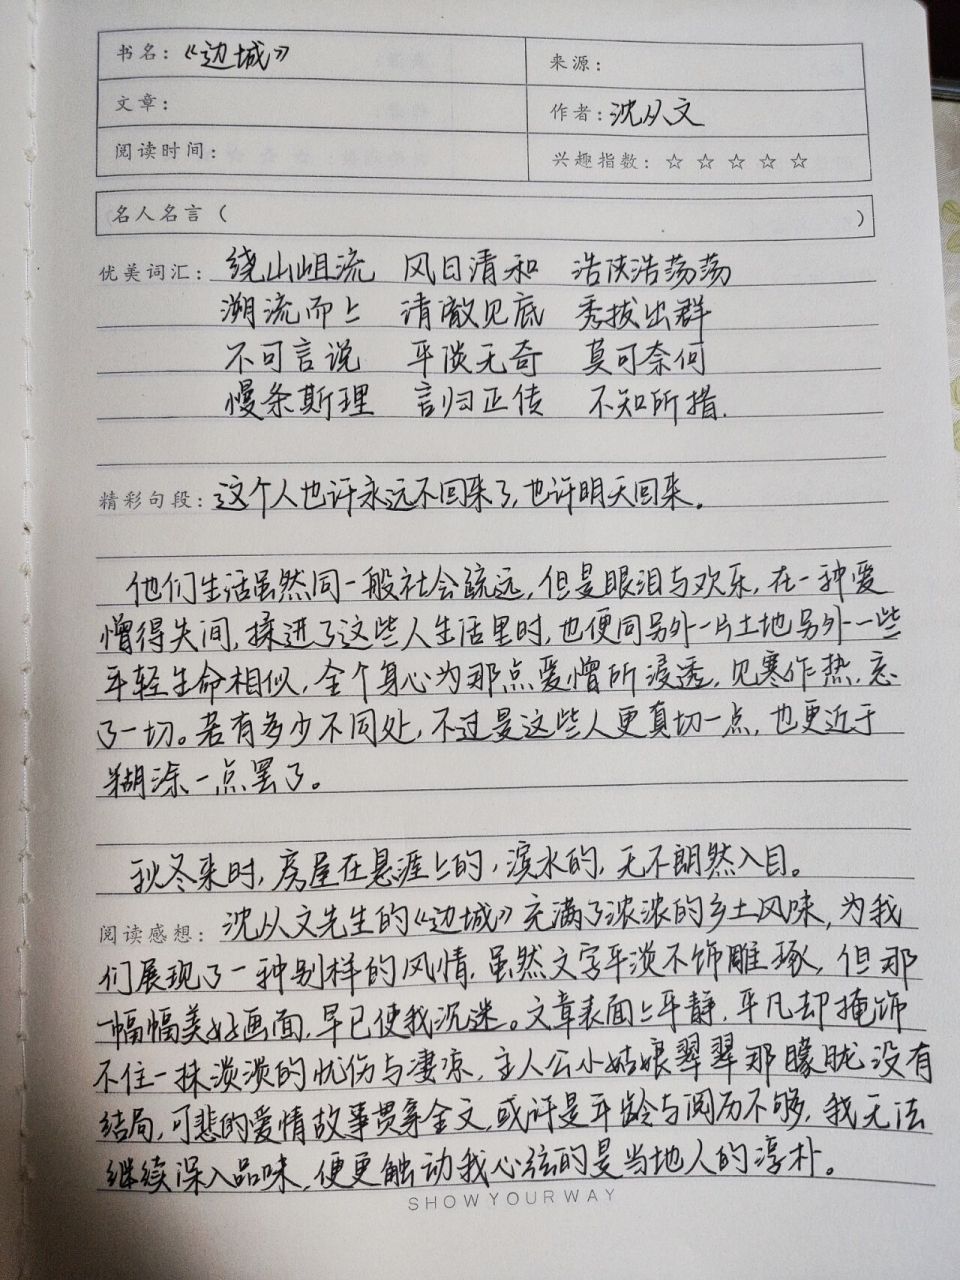 书名：《边城》
来源：
文章：
作者：沈从文
阅读时间：
兴趣指数：☆ ☆ ☆ ☆ ☆
名人名言（ ）
优美词汇：绕山岨流 风日清和 浩浃浩荡荡
溯流而上 清澈见底 秀拔出群
不可言说 平淡无奇 莫可奈何
慢条斯理 言归正传 不知所措.
精彩句段：这个人也许永远不回来了,也许明天回来.
他们生活虽然同一般社会疏远,但是眼泪与欢乐,在一种爱
憎得失间,揉进了这些人生活里时,也便同另外一片土地另外一些
年轻生命相似,全个身心为那点爱憎所浸透,见寒作热,忘
了一切。若有多少不同处,不过是这些人更真切一点,也更近于
糊涂一点罢了。
秋冬来时,房屋在悬涯上的,滨水的,无不朗然入目。
阅读感想：沈从文先生的《边城》充满了浓浓的乡土风味,为我
们展现了一种别样的风情,虽然文字平淡不饰雕琢,但那
一幅幅美好画面,早已使我沉迷。文章表面上平静,平凡却掩饰
不住一抹淡淡的忧伤与凄凉,主人公小姑娘翠翠那朦胧没有
结局,可悲的爱情故事贯穿全文,或许是年龄与阅历不够,我无法
继续深入品味,便更触动我心弦的是当地人的淳朴。
SHOW YOUR WAY